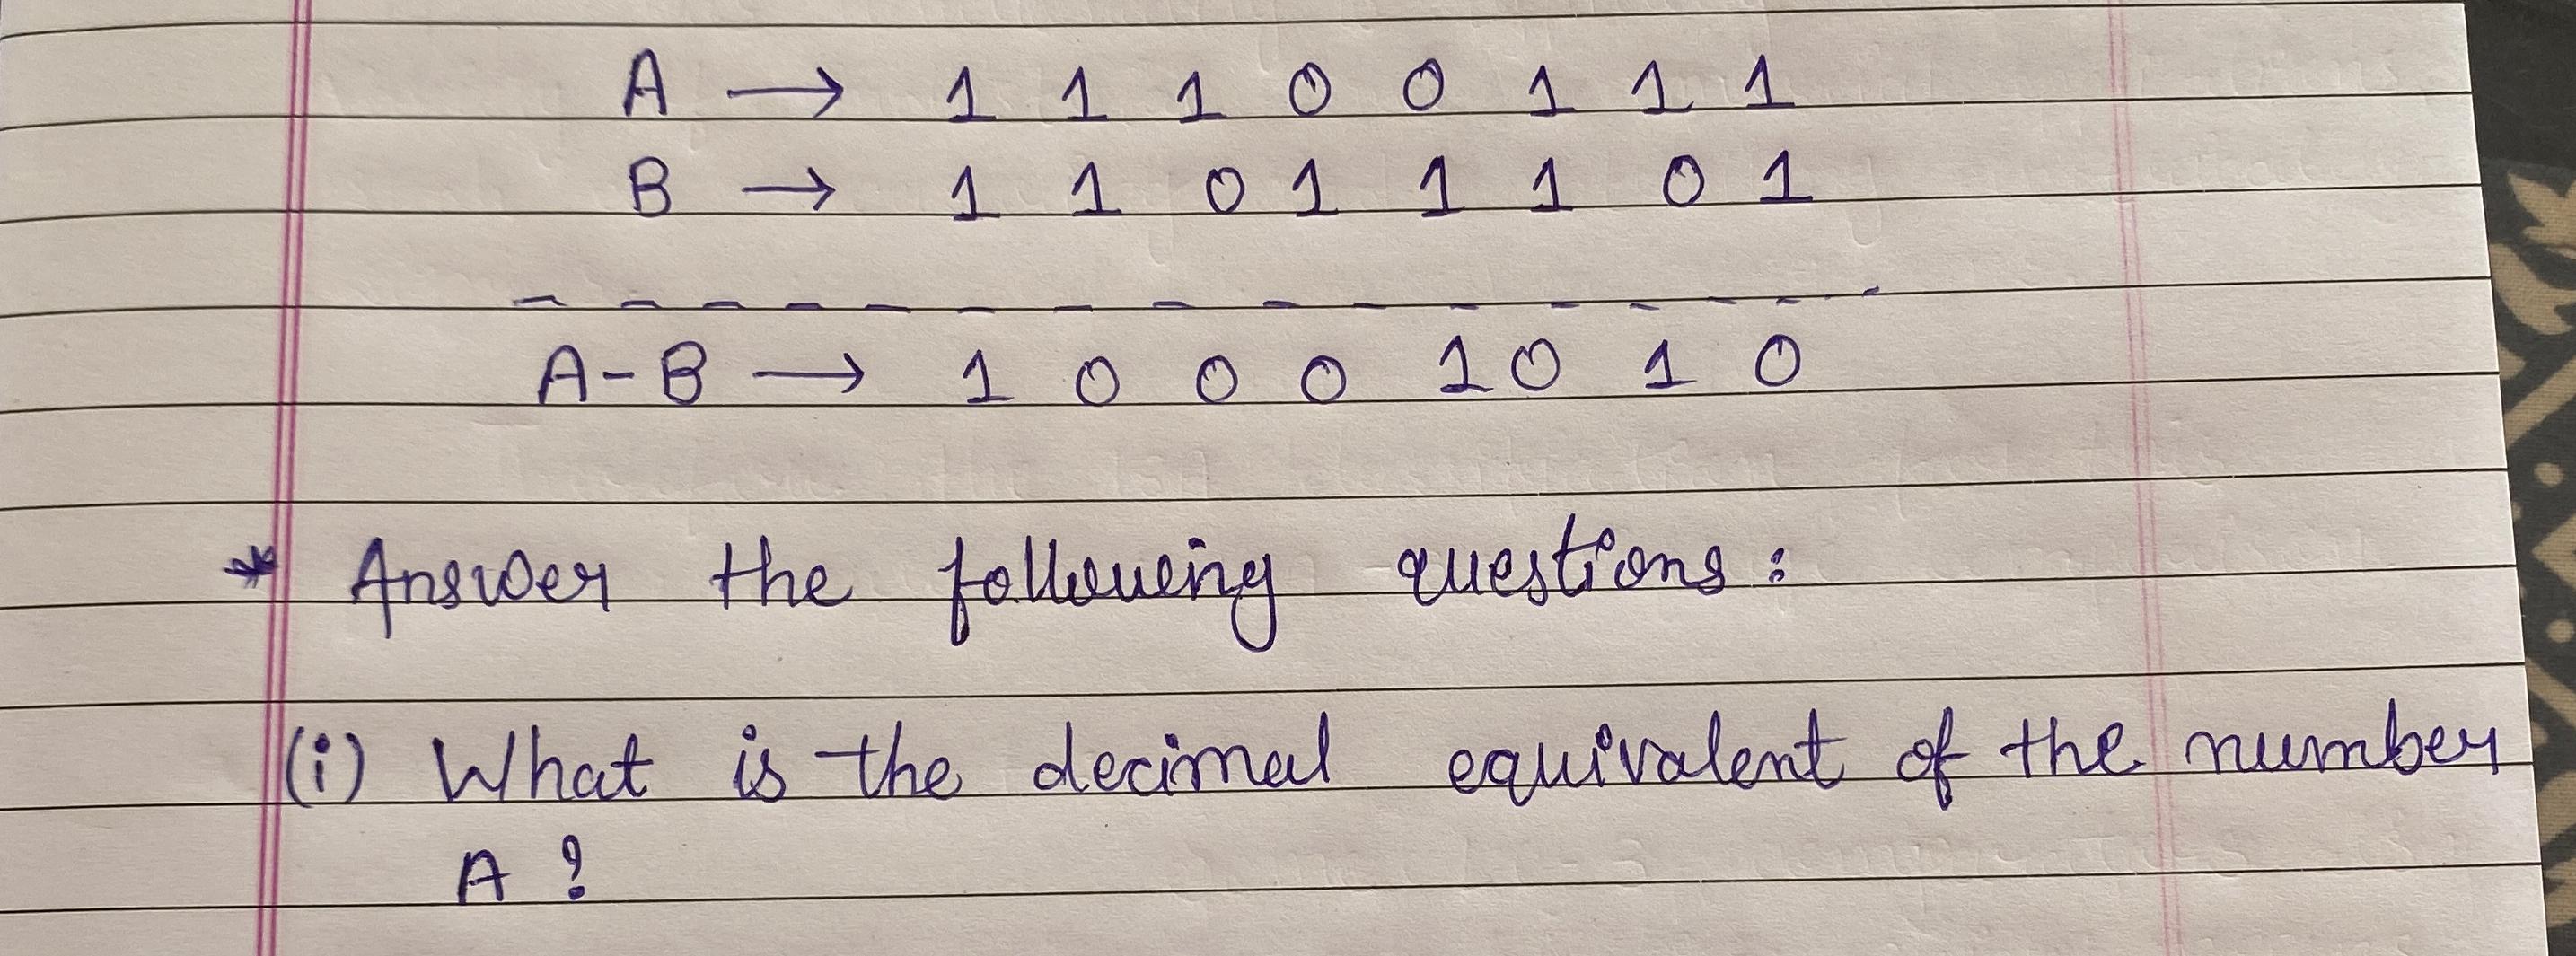 A → 1 1 1 0 0 1 1 1
B → 1 1 0 1 1 1 0 1
A-B → 1 0 0 0 1 0 1 0
* Answer the following questions:
(i) What is the decimal equivalent of the number
A ?